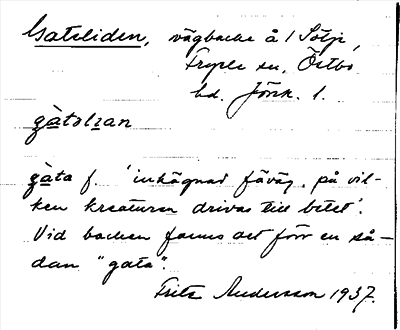 Gatsliden, vägbacke å 1 Sötje,
Fryele sn, Östbo
hd. Jönk. l.
gàtslɩan
gàta f. 'inhägnad fäväg, på vil-
ken kreaturen drivas till betet'.
Vid backen fanns det förr en så-
dan "gata".
Fritz Andersson 1937.